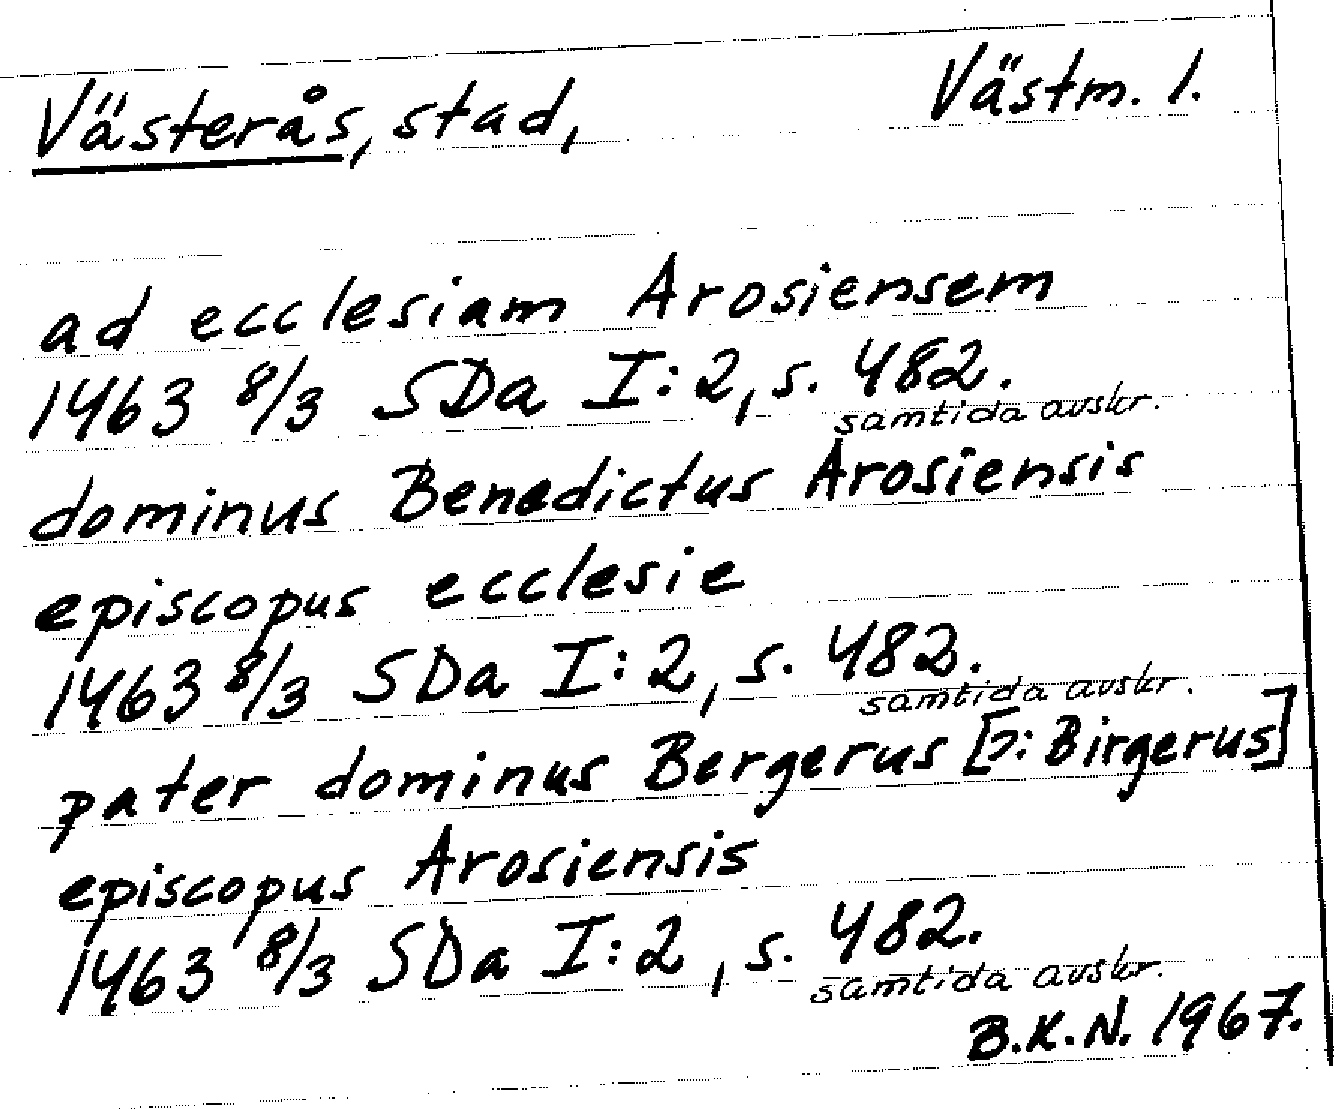 Västerås, stad, Västm. l.
ad ecclesiam Arosiensem
1463 8/3 SDa I:2, s. 482.
samtida avskr.
dominus Benedictus Arosiensis
episcopus ecclesie
1463 8/3 SDa I:2, s. 482.
samtida avskr.
pater dominus Bergerus [ɔ: Birgerus]
episcopus Arosiensis
1463 8/3 SDa I:2, s. 482.
samtida avskr.
B.K.N. 1967.